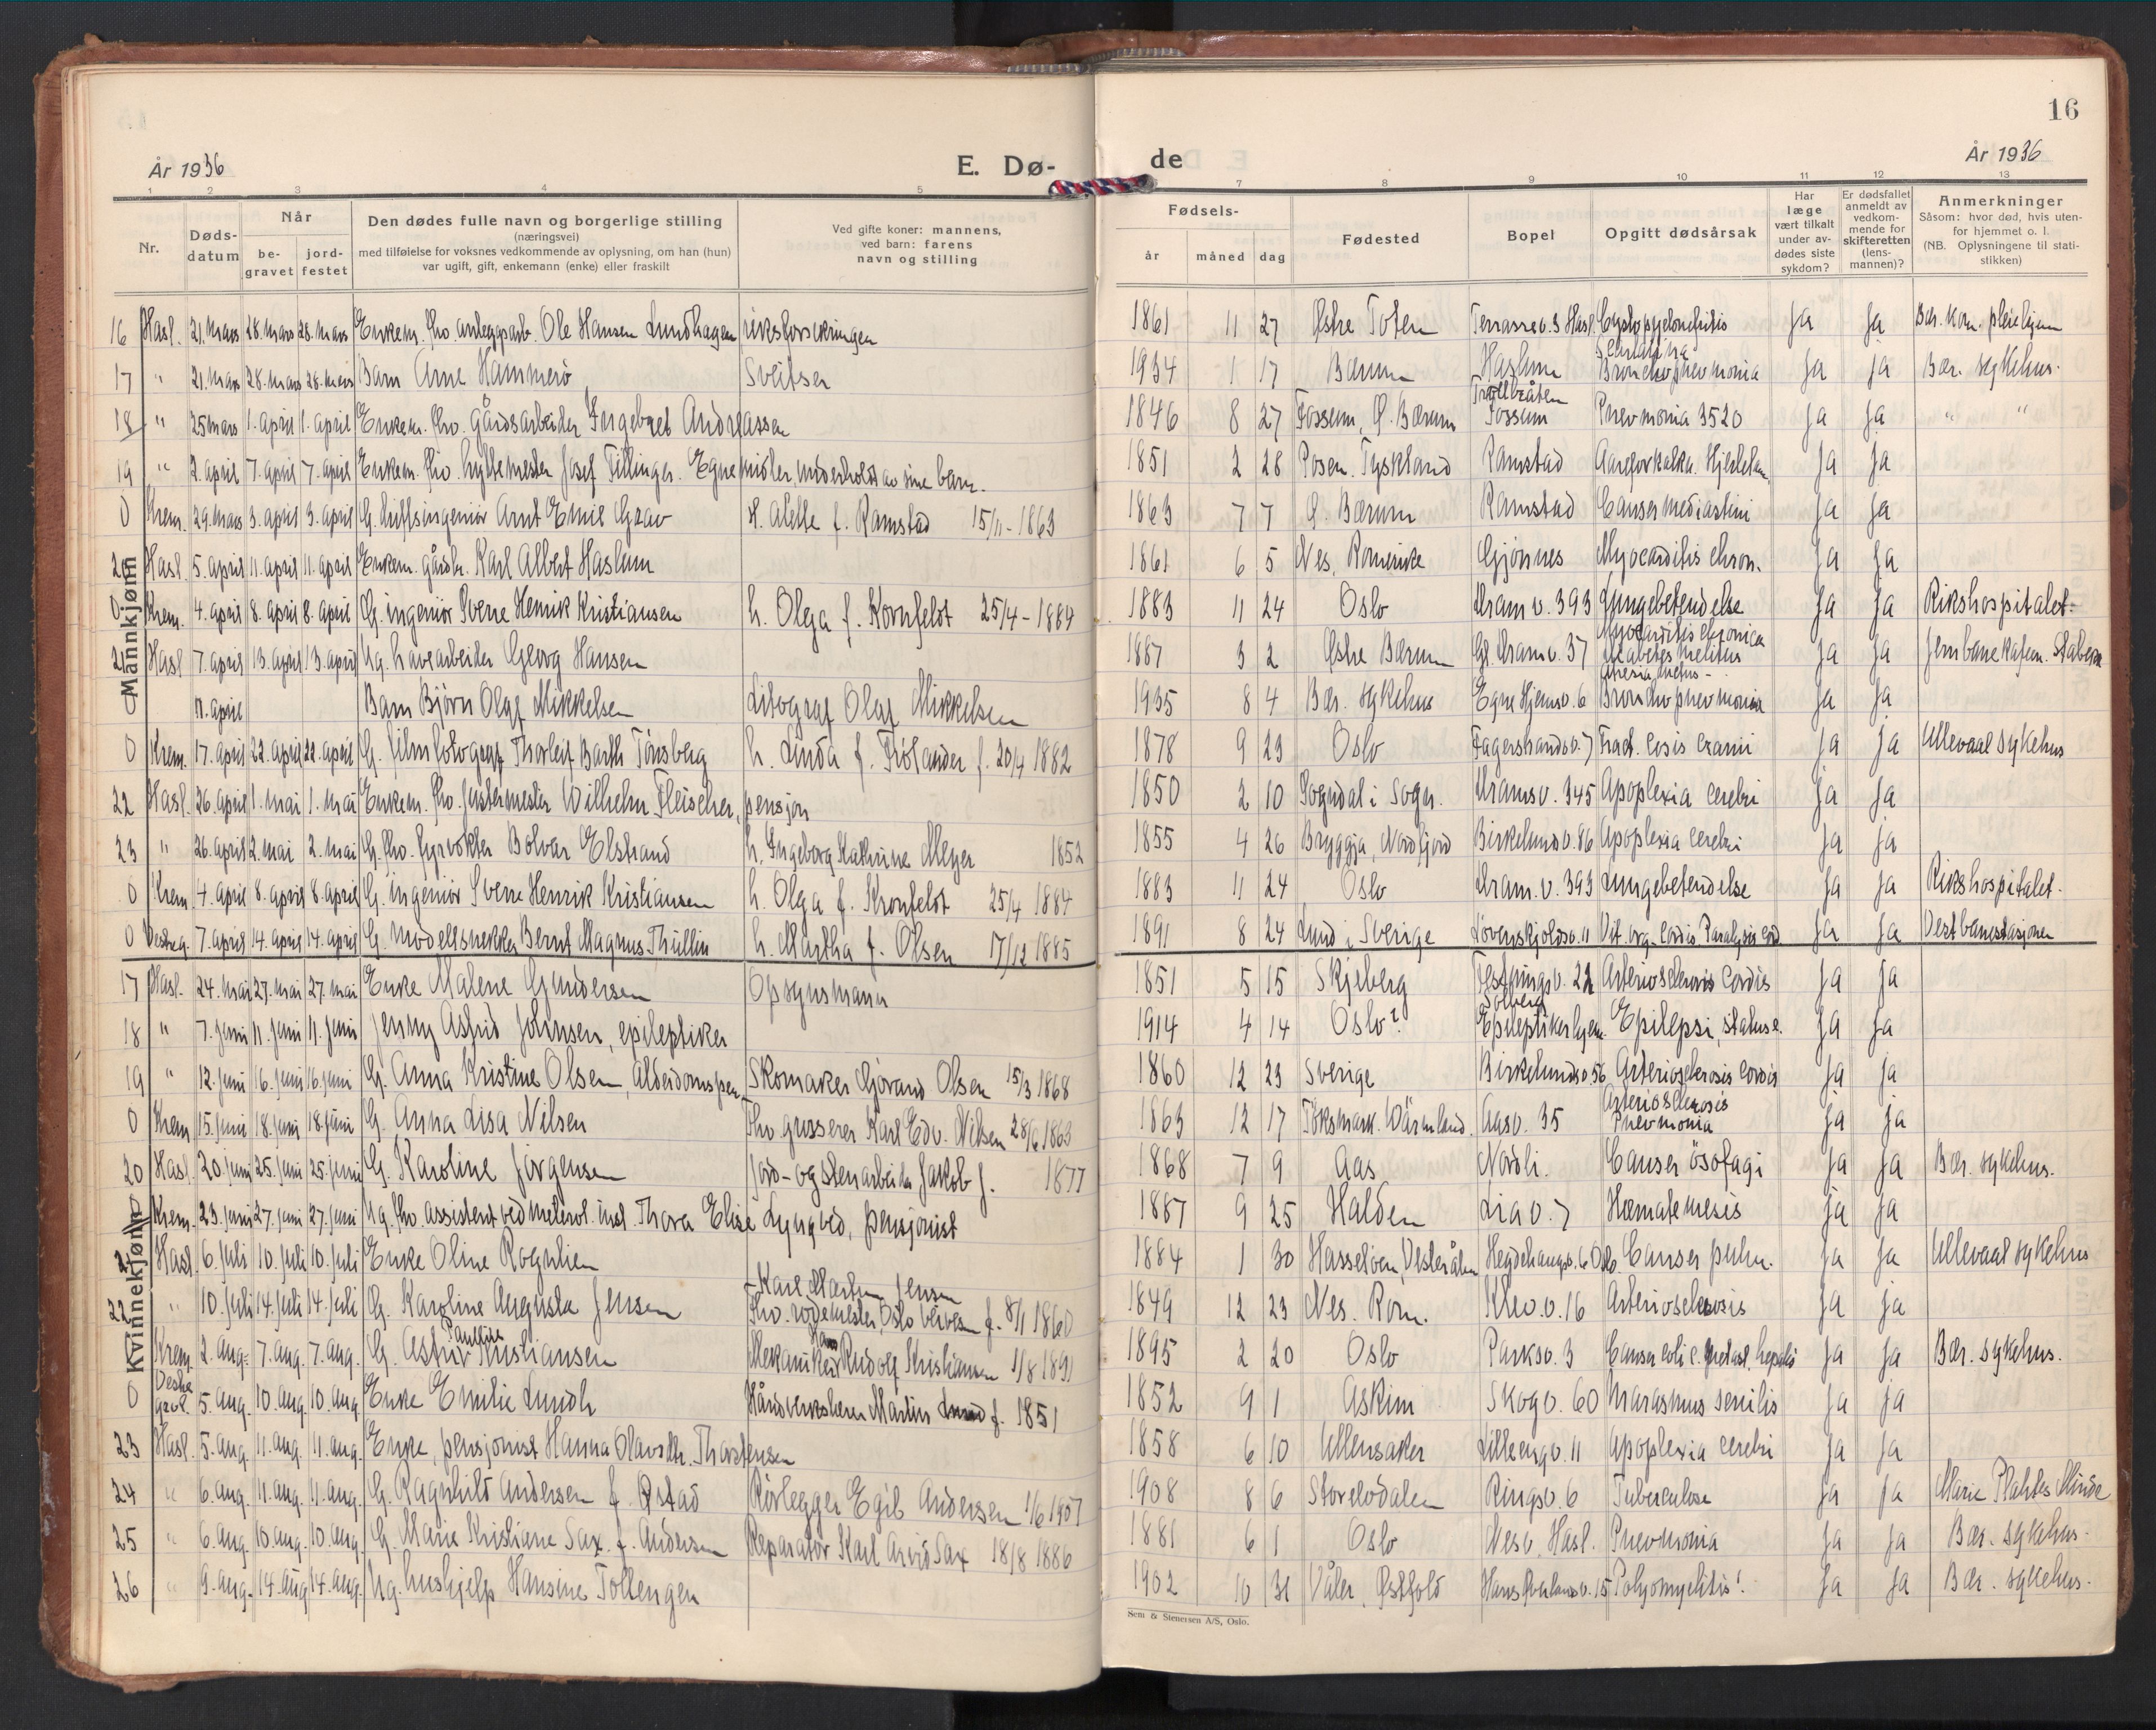 År 1936
E. Dø-
1 2 3 4 5
Nr.
Døds-
datum
Når
be-
gravet
jord-
festet
Den dødes fulle navn og borgerlige stilling
(næringsvei)
med tilføielse for voksnes vedkommende av oplysning, om han (hun)
var ugift, gift, enkemann (enke) eller fraskilt
Ved gifte koner: mannens,
ved barn: farens
navn og stilling
Mannkjønn
16 Hasl. 21. mars 28. mars 28. mars Enkem. fhv. anleggsarb. Ole Hansen Lundhagen riksforsikringen
17 " 21. mars 28. mars 28. mars Barn Arne Hammerö Sveitser
18 " 25 mars 1. april 1. april Enkem. fhv. Gårdsarbeider Ingebret Andreassen
19 " 2. april 7. april 7. april Enkem. fhv. hyttemester Josef Tillinger. Egne midler, underholdt av sine barn.
0 Krem. 29. mars 3. april 3. april G. luftsingeniör Arnt Emil Grav H. Alette f. Ramstad 15/11-1863
20 Hasl. 5. april 11. april 11. april Enkem. gårdbr. Karl Albert Haslum
0 Krem. 4. april 8. april 8. april G. ingeniör Sverre Henrik Kristiansen h. Olga f. Kornfeldt 25/4-1884
21 Hasl 7. april 13. april 13. april Ug. havearbeider Georg Hansen
0 11. april Barn Björn Olaf Mikkelsen Litograf Olaf Mikkelsen
0 Krem. 17. april 22. april 22. april G. filmfotograf Thorleif Barth Tönsberg h. Linda f. Frölander f. 20/4 1882
22 Hasl. 26. april 1. mai 1. mai Enkem. fhv. justermester Wilhelm Fleischer, pensjon
23 " 26. april 2. mai 2. mai G. fhv. fyrvokter Bolvar Elstrand h. Ingeborg Kathrine Meyer 1852
0 Krem. 4. april 8. april 8. april G. ingeniör Sverre Henrik Kristiansen h. Olga f. Kronfeldt 25/4 1884
0 Vestreg. 7. april 14. april 14. april G. modellsnekker Bernt Magnus Thullin h. Martha f. Olsen 17/12 1885
Kvinnekjønn
17 Hasl. 24. mai 27. mai 27. mai Enke Malene Gundersen Opsynsmann
18 " 7. juni 11. juni 11. juni Jenny Astrid Johnsen, epileptiker
19 " 12. juni 16. juni 16. juni G. Anna Kristine Olsen, Alderdomspen. Skomaker Gjörand Olsen 15/3 1868
0 Krem 15. juni 18. juni 18. juni G. Anna Lisa Nilsen Fhv. gusserer Karl Edv. Nilsen 28/6 1863
20 Hasl. 20. juni 25. juni 25. juni G. Karoline Jörgensen Jord- og stenarbeider Jakob J. 1877
0 Krem. 23. juni 27. juni 27. juni Ug. fhv. assistent ved meterol. inst. Thora Elise Lyngved, pensjonist
21 Hasl. 6. juli 10. juli 10. juli Enke Oline Rognlien
22 " 10. juli 14. juli 14. juli G. Karoline Augusta Jensen Karl Martin Jensen
Fhv. vognmester, Oslo f. 8/1 1860
0 Krem. 2. aug. 7. aug. 7. aug. G. Astrid Pauline Kristiansen Mekaniker Hans Rudolf Kristiansen 1/8 1891
0 Vestre grav. 5. aug. 10. aug. 10. aug. Enke Emilie Lundh Håndverkslærer Martin Lund f. 1851
23 Hasl. 5. aug. 11. aug. 11. aug. Enke, pensjonist Hanna Olavsdtr. Thorstensen
24 " 6. aug. 11. aug. 11. aug. G. Ragnhild Andersen f. Østad Rörlegger Egil Andersen 1/6 1907
25 " 6. aug. 10. aug. 10. aug. G. Marie Kristiane Sax. f. Andersen Reparatör Karl Arvid Sax 18/8 1886
26 " 9. aug. 14. aug 14. aug. Ug. hushjelp Hansine Tollengen
16
de
År 1936
7 8 9 10 11 12 13
Fødsels-
år måned dag
Fødested
Bopel
Opgitt dødsårsak
Har
læge
vært tilkalt
under av-
dødes siste
sykdom?
Er dødsfallet
anmeldt av
vedkom-
mende for
skifteretten
(lens-
mannen)?
Anmerkninger
Såsom: hvor død, hvis uten-
for hjemmet o. l.
(NB. Oplysningene til stati-
stikken)
1861 11 27 Østre Toten Terrassev. 3 Hasl. Cystopyelonefritis Ja Ja Bær. kom. pleiehjem
1934 1 17 Bærum Haslum Scarlatina Bronchopnevmonia Ja Ja Bær. sykehus.
1846 8 27 Fossum, Ø. Bærum Trollbråten Fossum Pnevmonia 3520 Ja Ja " "
1851 2 28 Posen. Tyskland Ramstad Ja Ja
1863 7 7 Ø. Bærum Ramstad Canser mediastini Ja Ja
1861 6 5 Nes, Romerike Gjönnes Myocarditis chron. Ja Ja
1883 11 24 Oslo Dram. v. 393 Lungebetendelse Ja Ja Rikshospitalet.
1887 3 2 Østre Bærum Gl. Dram. v. 37 Myocarditis chronica Diabetes melitus Ja Ja Jernbanekafeen. Stabekk
1935 8 4 Bær. sykehus Egne Hjemsv. 6 Bronchopnevmonia Ja Ja
1878 9 23 Oslo Fagerstrandsv. 7 Fract. basis cranii Ja Ja Ullevaal sykehus
1850 2 10 Sogndal i Sogn. Dramsv. 345 Apoplexia cerebri Ja Ja
1855 4 26 Bryggja, Nordfjord Birkelundsv. 86 Apoplexia cerebri Ja Ja
1883 11 24 Oslo Dram. v. 393 Lungebetendelse Ja Ja Rikshospitalet.
1891 8 24 Lund i Sverige Lövenskjoldsv. 11 Vit. org. cordis Paralysis cord. Ja Ja Vestbanestasjonen
1851 5 15 Skjeberg Festningsv. 22 Arteriosclerosis cordis Ja Ja
1914 4 14 Oslo? Solberg Epileptikerhjem. Epilepsi, status e. Ja Ja
1860 12 23 Sverige Birkelundsv. 56 Arteriosclerosis cordis Ja Ja
1863 12 17 Töksmark. Wärmland. Aasv. 35 Arteriosclerosis Pnevmonia Ja Ja
1868 7 9 Aas Nordli. Canser ösofagi Ja Ja Bær. sykehus.
1887 9 25 Halden Liav. 7 Hæmatemesis Ja Ja
1884 1 30 Hasseløen, Vesterålen Hegdehaugsv. 6 Oslo. Canser pulm. Ja Ja Ullevaal sykehus
1849 12 23 Nes. Rom. Klev. v. 16 Arteriosclerosis Ja Ja
1895 2 20 Oslo Parksv. 3 Canser coli c. metast. hepatis Ja Ja Bær. sykehus.
1852 9 1 Askim Skogv. 60 Marasmus senilis Ja Ja
1858 6 10 Ullensaker Lilleengv. 11 Apoplexia cerebri Ja Ja
1908 8 6 Storelvdalen Ringsv. 6 Tuberculose Ja Ja Marie Plahtes Minde
1881 6 1 Oslo Nesv. Hasl. Pnevmonia Ja Ja Bær. sykehus.
1902 10 31 Våler, Østfold Polyomyelitis! Ja Ja Bær. sykehus.
Sem & Stenersen A/S, Oslo.